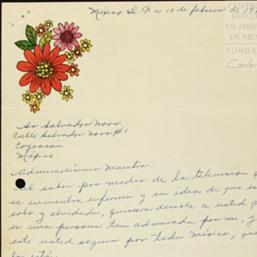 México D. F. a 10 de febrero de 19
CENTRO
ESTUD
DE HISTO
DE MÉXI
FUNDA
Carlos
Sr. Salvador Novo
Calle Salvador Novo #1
Coyoacán
México
Admiradísimo Maestro:
Al saber por medio de la television q
se encuentra enfermo y en idea de que es
solo y olvidado, quisiera decirle a usted q
es una persona tan admirada por mi, y
esté usted seguro por todo México, que